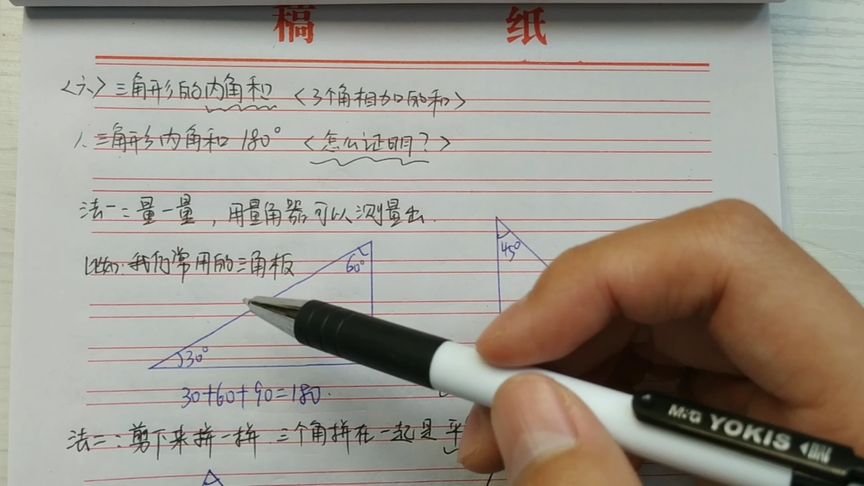 稿 纸
<六> 三角形的内角和 <3个角相加的和>
1. 三角形内角和 180° <怎么证明?>
法一: 量一量, 用量角器可以测量出.
比如: 我们常用的三角板
60°
45°
30°
30+60+90=180.
法二: 剪下来拼一拼 三个角拼在一起是平
M&G YOKIS